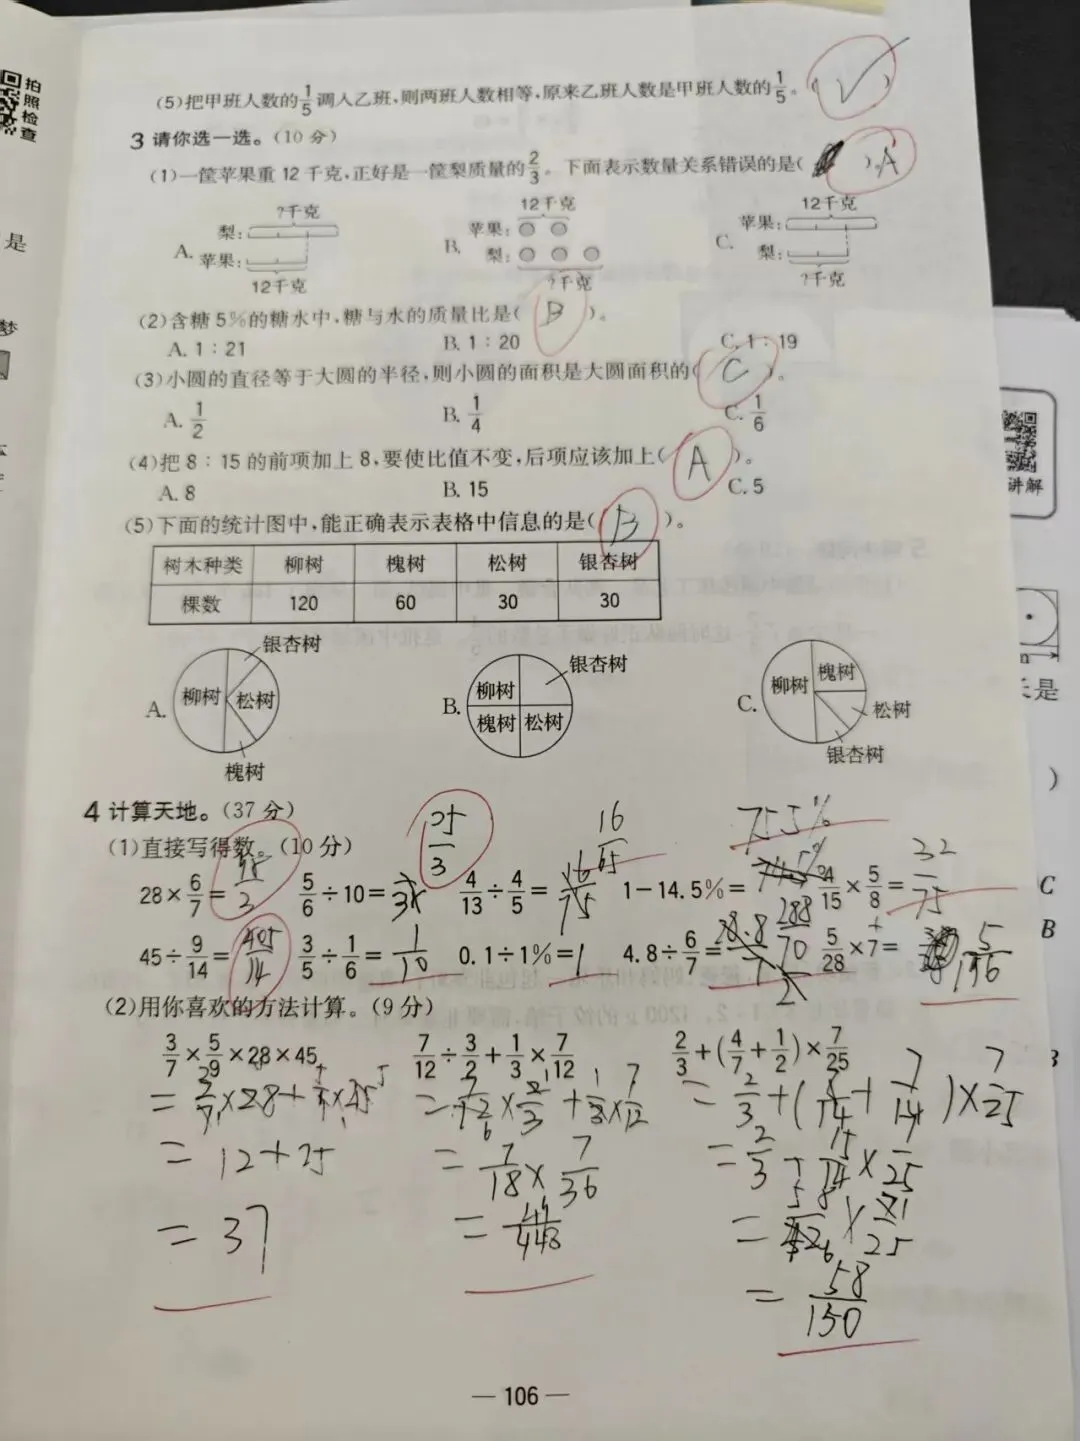 拍照检查
(5)把甲班人数的1/5调入乙班,则两班人数相等,原来乙班人数是甲班人数的1/5。(✓)
3 请你选一选。(10分)
(1)一筐苹果重12千克,正好是一筐梨质量的2/3。下面表示数量关系错误的是( )。A
?千克 12千克 12千克
梨: 苹果: 苹果:
A. B. C.
苹果: 梨: 梨:
12千克 ?千克 ?千克
(2)含糖5%的糖水中,糖与水的质量比是( B )。
A. 1:21 B. 1:20 C. 1:19
(3)小圆的直径等于大圆的半径,则小圆的面积是大圆面积的( C )。
A. 1/2 B. 1/4 C. 1/6
(4)把8:15的前项加上8,要使比值不变,后项应该加上( A )。
A. 8 B. 15 C. 5
(5)下面的统计图中,能正确表示表格中信息的是( B )。
树木种类 柳树 槐树 松树 银杏树
棵数 120 60 30 30
A. 柳树 银杏树 松树 槐树
B. 柳树 银杏树 槐树 松树
C. 柳树 槐树 松树 银杏树
4 计算天地。(37分)
(1)直接写得数。(10分)
25/3 16/65 32/75
28×6/7= 5/6÷10= 4/13÷4/5= 1-14.5%= 4/15×5/8=
45÷9/14=405/14 3/5÷1/6=1/10 0.1÷1%=1 4.8÷6/7= 5/28×7=5/196
(2)用你喜欢的方法计算。(9分)
3/7×5/9×28×45 7/12÷3/2+1/3×7/12 2/3+(4/7+1/2)×7/25
=3/7×28+5/9×45 =7/12×2/3+1/3×7/12 =2/3+(8/14+7/14)×7/25
=12+25 =7/18×7/36 =2/3+15/14×7/25
=37 =58/150
— 106 —
讲解
长是
)
C
B
是
梦